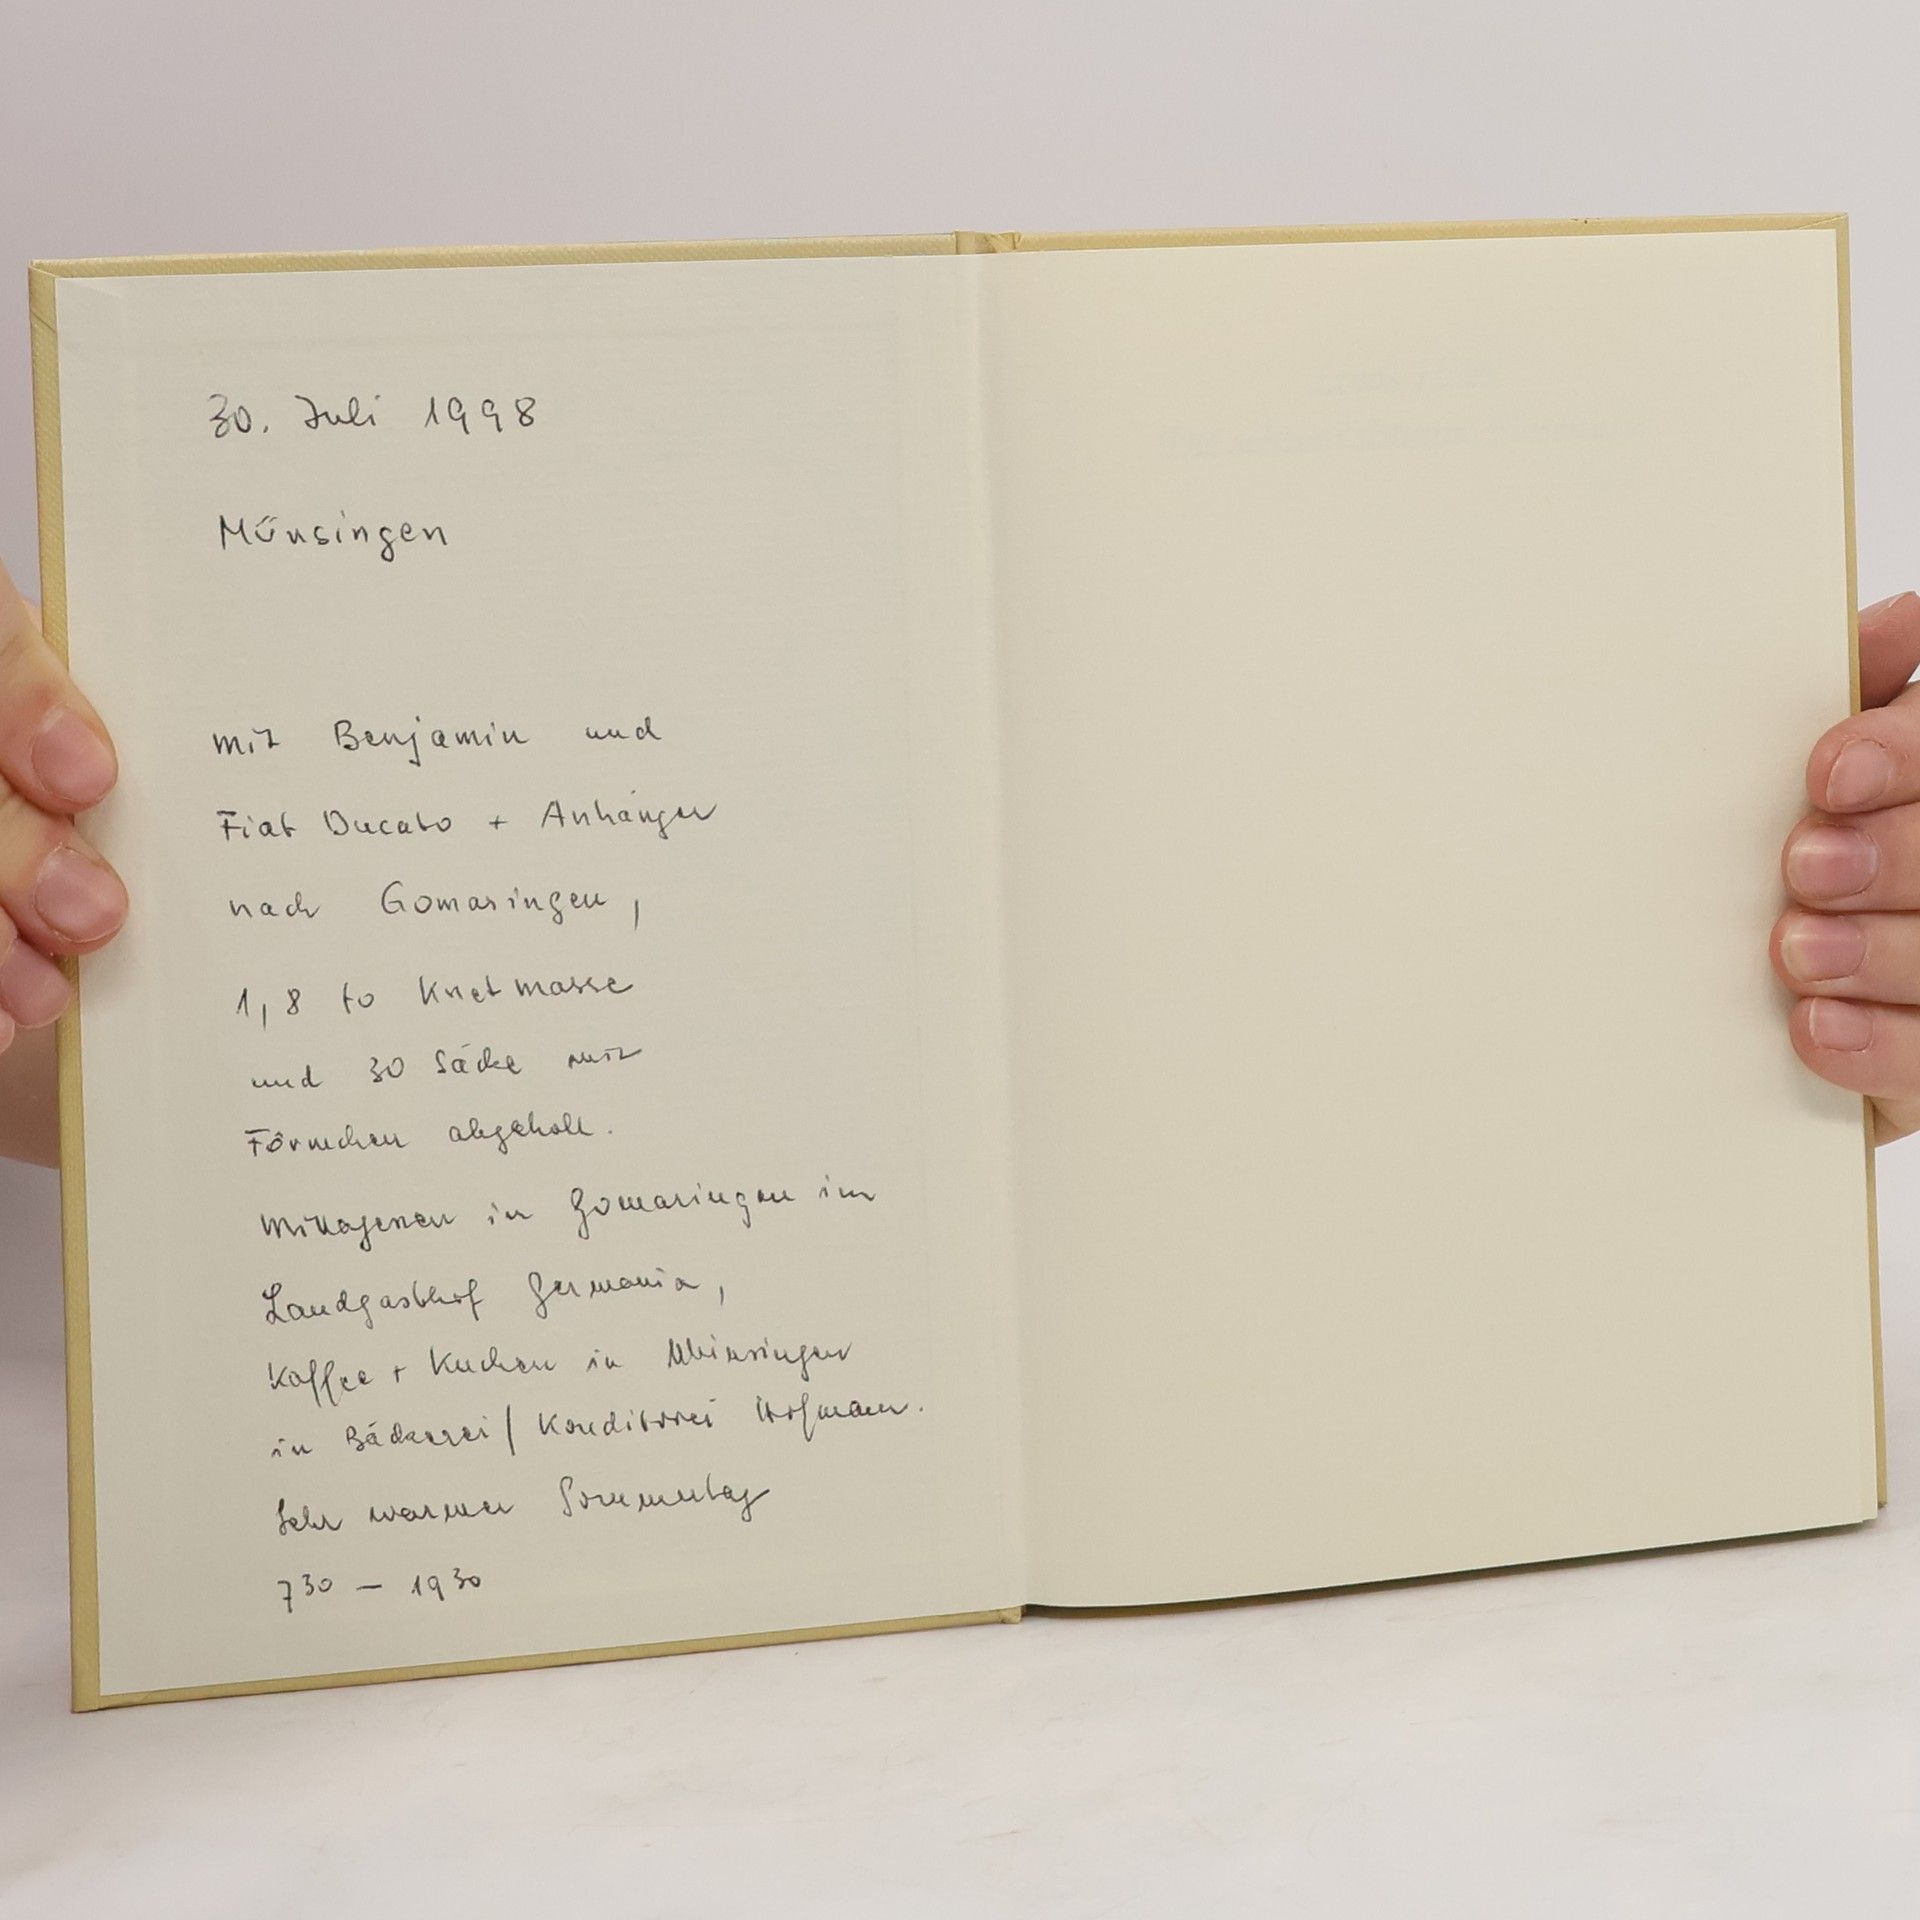 30. Juli 1998
Münsingen
mit Benjamin und
Fiat Ducato + Anhänger
nach Gomaringen,
1,8 to Knetmasse
und 30 Säcke mit
Förmchen abgeholt.
Mittagessen in Gomaringen im
Landgasthof Germania,
Kaffee + Kuchen in Münsingen
in Bäckerei / Konditorei Hofmann.
Sehr warmer Sommertag
7³⁰ – 19³⁰